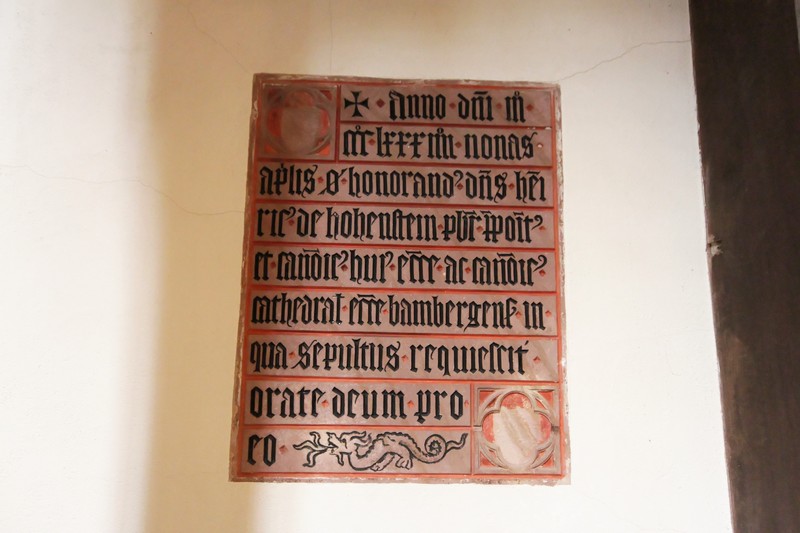 ✠ · Anno · dn̄i · mͦ ·
ccͦc · lxxx iiiiͦ · nonas
ap̄lis · ꝋ · honorandꝰ dn̄s · hēi
ricꝰ de hohenstein · pb̄r · p̄poitꝰ
et · can̄oicꝰ huiꝰ ecc̄e · ac · can̄oicꝰ
cathedral · ecc̄e bambergenſ · in
qua · sepultus · requiescit
orate · deum · pro
eo ·